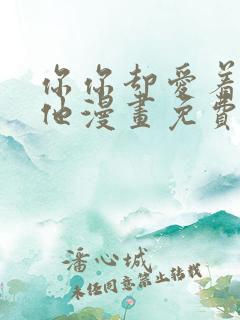 你你却爱着
他漫畫免費
潘心城
未经同意禁止转载